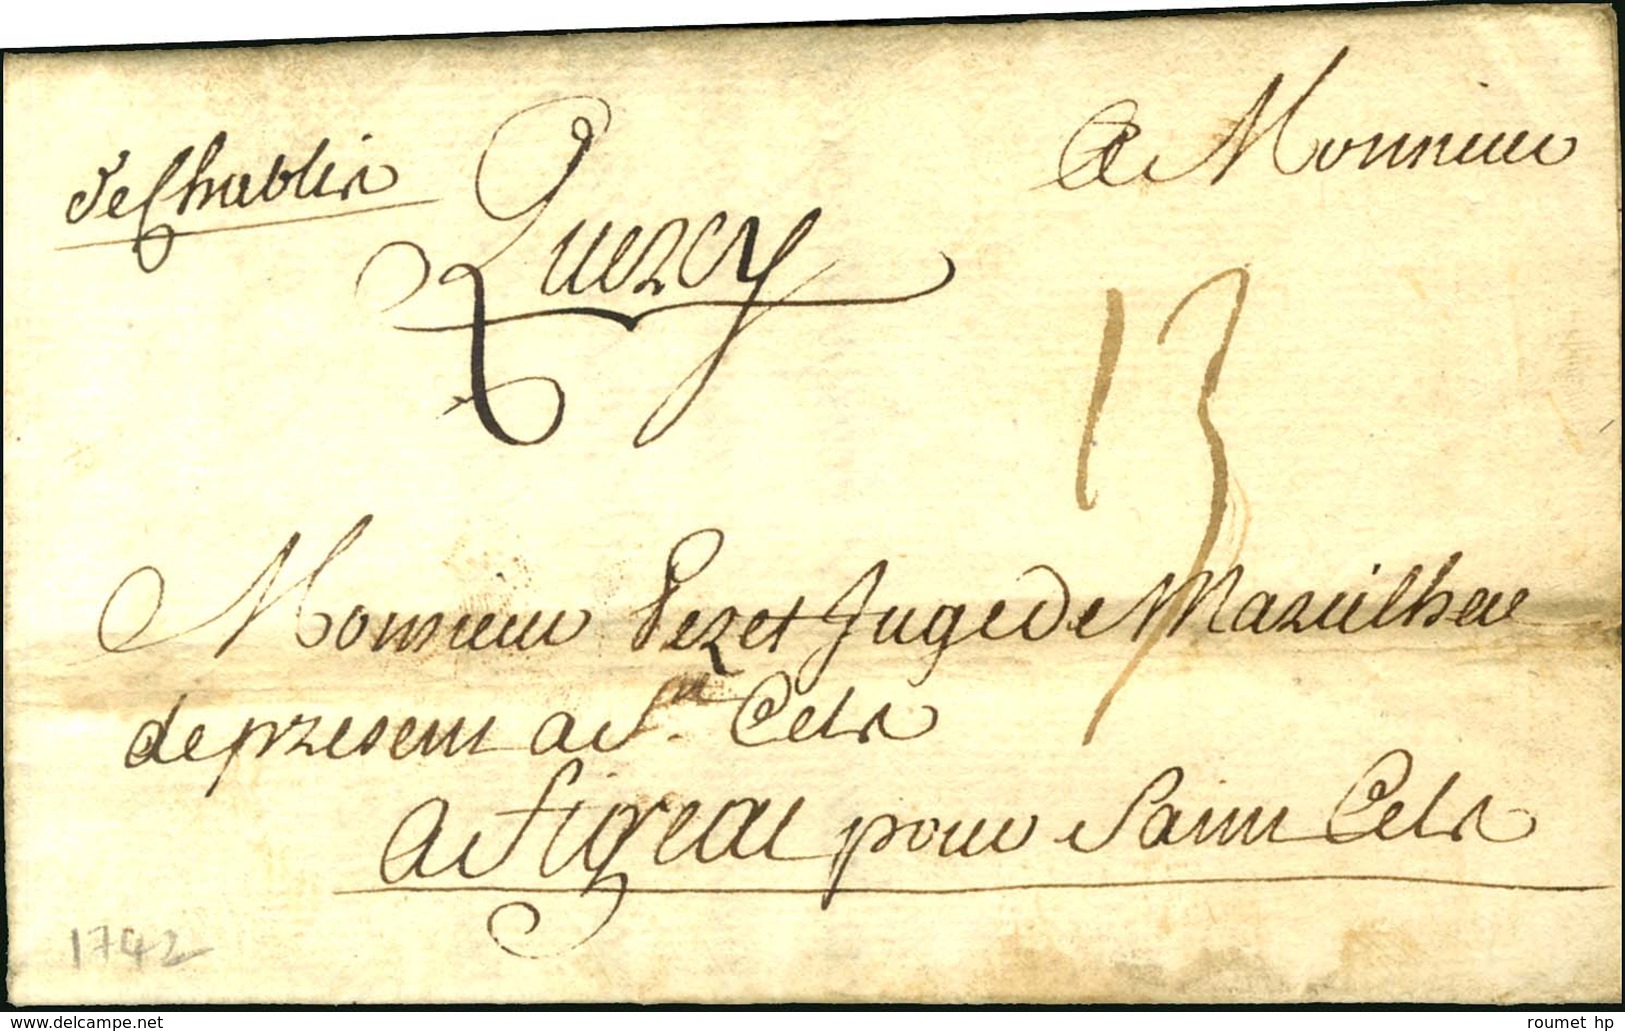 de Chablis
Quercy
A Monsieur
13
Monsieur Pezet Juge de Marcilhac
de present a St. Cels
a Figeac pour Saint Cels
1742
roumet hp